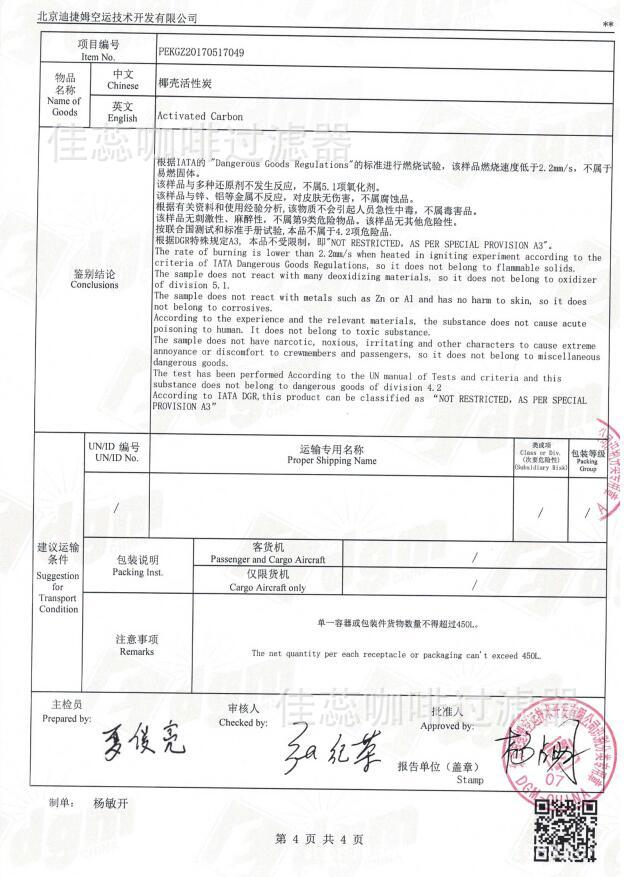 北京迪捷姆空运技术开发有限公司
**
项目编号
Item No.
PEKGZ20170517049
物品
名称
Name of
Goods
中文
Chinese
椰壳活性炭
英文
English
Activated Carbon
佳蕊咖啡过滤器
鉴别结论
Conclusions
根据IATA的 "Dangerous Goods Regulations"的标准进行燃烧试验，该样品燃烧速度低于2.2mm/s，不属于
易燃固体。
该样品与多种还原剂不发生反应，不属5.1项氧化剂。
该样品与锌、铝等金属不反应，对皮肤无伤害，不属腐蚀品。
根据有关资料和使用经验分析，该物质不会引起人员急性中毒，不属毒害品。
该样品无刺激性、麻醉性，不属第9类危险物品。该样品无其他危险性。
按联合国测试和标准手册试验，本品不属于4.2项危险品.
根据DGR特殊规定A3， 本品不受限制，即"NOT RESTRICTED, AS PER SPECIAL PROVISION A3"。
The rate of burning is lower than 2.2mm/s when heated in igniting experiment according to the
criteria of IATA Dangerous Goods Regulations, so it does not belong to flammable solids.
The sample does not react with many deoxidizing materials, so it does not belong to oxidizer
of division 5.1.
The sample does not react with metals such as Zn or Al and has no harm to skin, so it does
not belong to corrosives.
According to the experience and the relevant materials, the substance does not cause acute
poisoning to human. It does not belong to toxic substance.
The sample does not have narcotic, noxious, irritating and other characters to cause extreme
annoyance or discomfort to crewmembers and passengers, so it does not belong to miscellaneous
dangerous goods.
The test has been performed According to the UN manual of Tests and criteria and this
substance does not belong to dangerous goods of division 4.2
According to IATA DGR,this product can be classified as “NOT RESTRICTED, AS PER SPECIAL
PROVISION A3”
建议运输
条件
Suggestion
for
Transport
Condition
UN/ID 编号
UN/ID No.
运输专用名称
Proper Shipping Name
类或项
Class or Div.
(次要危险性)
(Subsidiary Risk)
包装等级
Packing
Group
/
/
/
包装说明
Packing Inst.
客货机
Passenger and Cargo Aircraft
/
仅限货机
Cargo Aircraft only
/
注意事项
Remarks
单一容器或包装件货物数量不得超过450L。
The net quantity per each receptacle or packaging can't exceed 450L.
佳蕊咖啡过滤器
主检员
Prepared by:
夏俊亮
审核人
Checked by:
批准人
Approved by:
报告单位（盖章）
Stamp
07
DGM-CHINA
制单： 杨敏开
第 4 页 共 4 页